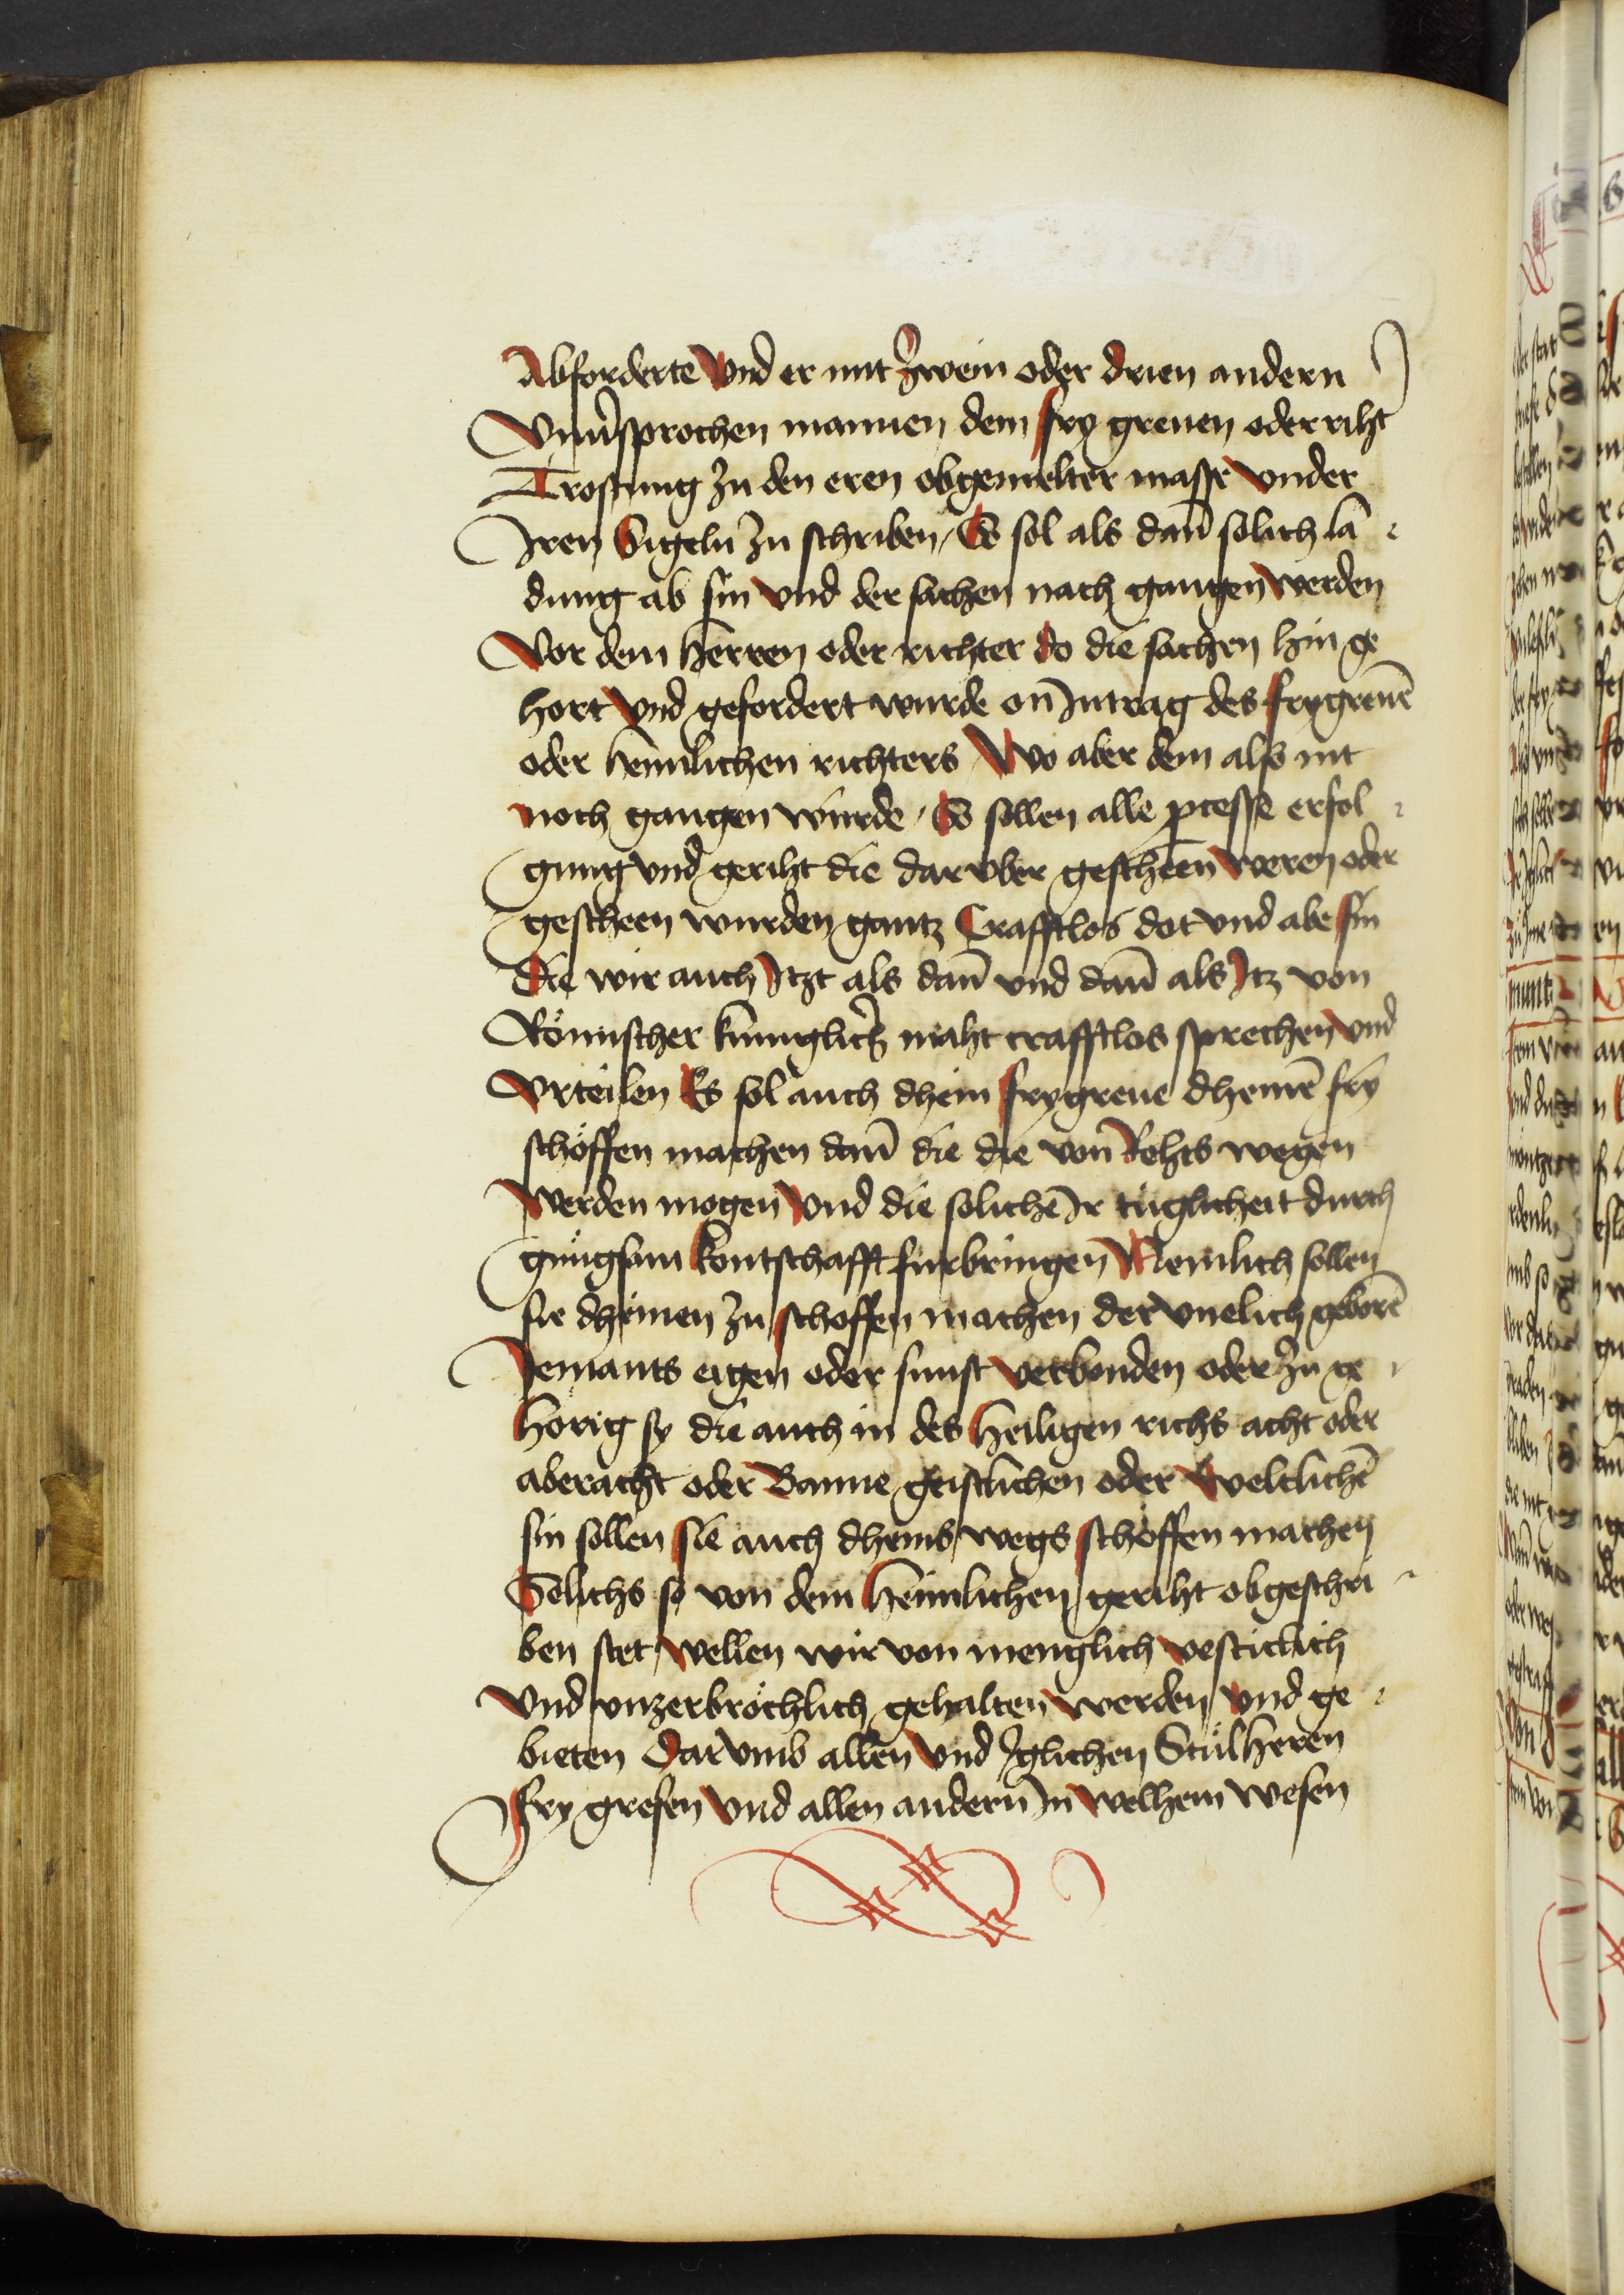 Abforderte vnd er mit zwein oder drien andern
Vnuersprochen mannen dem fry greuen oder riht
Trostung zu den eren obgemelter masse vnder
Iren Sigeln zu schriben / So sol als dan̄ solich la
dung ab sin vnd der sachen nach gangen werden
Vor dem herren oder richter do die sachen hin ge
hort vnd gefordert wurde on Intrag des frygreuē
oder heimlichen richters Wo aber dem also nit
noch gangen wurde / So sollen alle ꝓcesse erfol
gung vnd geriht die darvber gescheen weren oder
gescheen wurden gantz Crafftlos dot vnd abe sin
die wir auch Itzt als dan̄ vnd dan̄ als Itz von
Römischer kunglicher maht crafftlos sprechen vnd
Vrteilen Es sol auch dhein frygreue dheinē fry
schöffen machen dan̄ die die von Rehts wegen
werden mogen vnd die solichē Ir tuglicheit durch
gnugsam kontschafft furbringen Nemlich sollen
sie dheinen zu schoffen machen der vnelich geborē
Jemants eigen oder sunst verbonden oder zu ge
hörig sy die auch in des heiligen richs acht oder
aberacht oder Banne geistlichen oder weltlichē
sin sollen sie auch dheins wegs schöffen machen
Solichs so von dem heimlichen geriht obgeschri
ben stet wellen wir von menglich vesticlich
Vnd vnzerbröchlich gehalten werden vnd ge
bieten Dar vmb allen vnd Iglichen Stulherren
Fry grefen vnd allen andern In welhem wesen